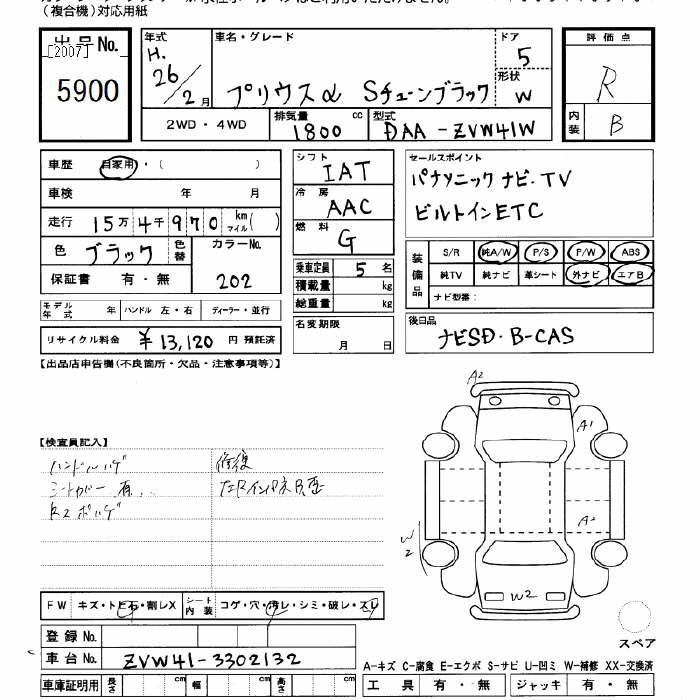 (複合機)対応用紙
出品No.
[2007]
5900
年式
H.
26/2月
車名・グレード
プリウスα Sチューンブラック
ドア
5
形状
W
2WD・4WD
排気量
1800 cc
型式
DAA-ZVW41W
評価点
R
内装
B
車歴 自家用・( )
車検 年 月
走行 15万4千970km マイル( )
色 ブラック 色替 カラーNo.
保証書 有・無 202
モデル年式 年 ハンドル 左・右 ディーラー・並行
リサイクル料金 ¥13,120 円 預託済
シフト
IAT
冷房
AAC
燃料
G
乗車定員 5名
積載量 kg
総重量 kg
名変期限
月 日
セールスポイント
パナソニックナビ・TV
ビルトインETC
装備品
S/R 純A/W P/S P/W ABS
純TV 純ナビ 革シート 外ナビ エアB
ナビ型番:
後日品
ナビSD・B-CAS
【出品店申告欄(不良箇所・欠品・注意事項等)】
【検査員記入】
ハンドルハゲ
シートカバー有
修復
A2
A1
A2
W2
W2
FW キズ・トビ石・割レX
シート内装 コゲ・穴・汚レ・シミ・破レ・スレ
登録No.
車台No. ZVW41-3302132
車庫証明用 長さ cm 幅 cm 高さ cm
スペア
A-キズ C-腐食 E-エクボ S-サビ U-凹ミ W-補修 XX-交換済
工具 有・無 ジャッキ 有・無